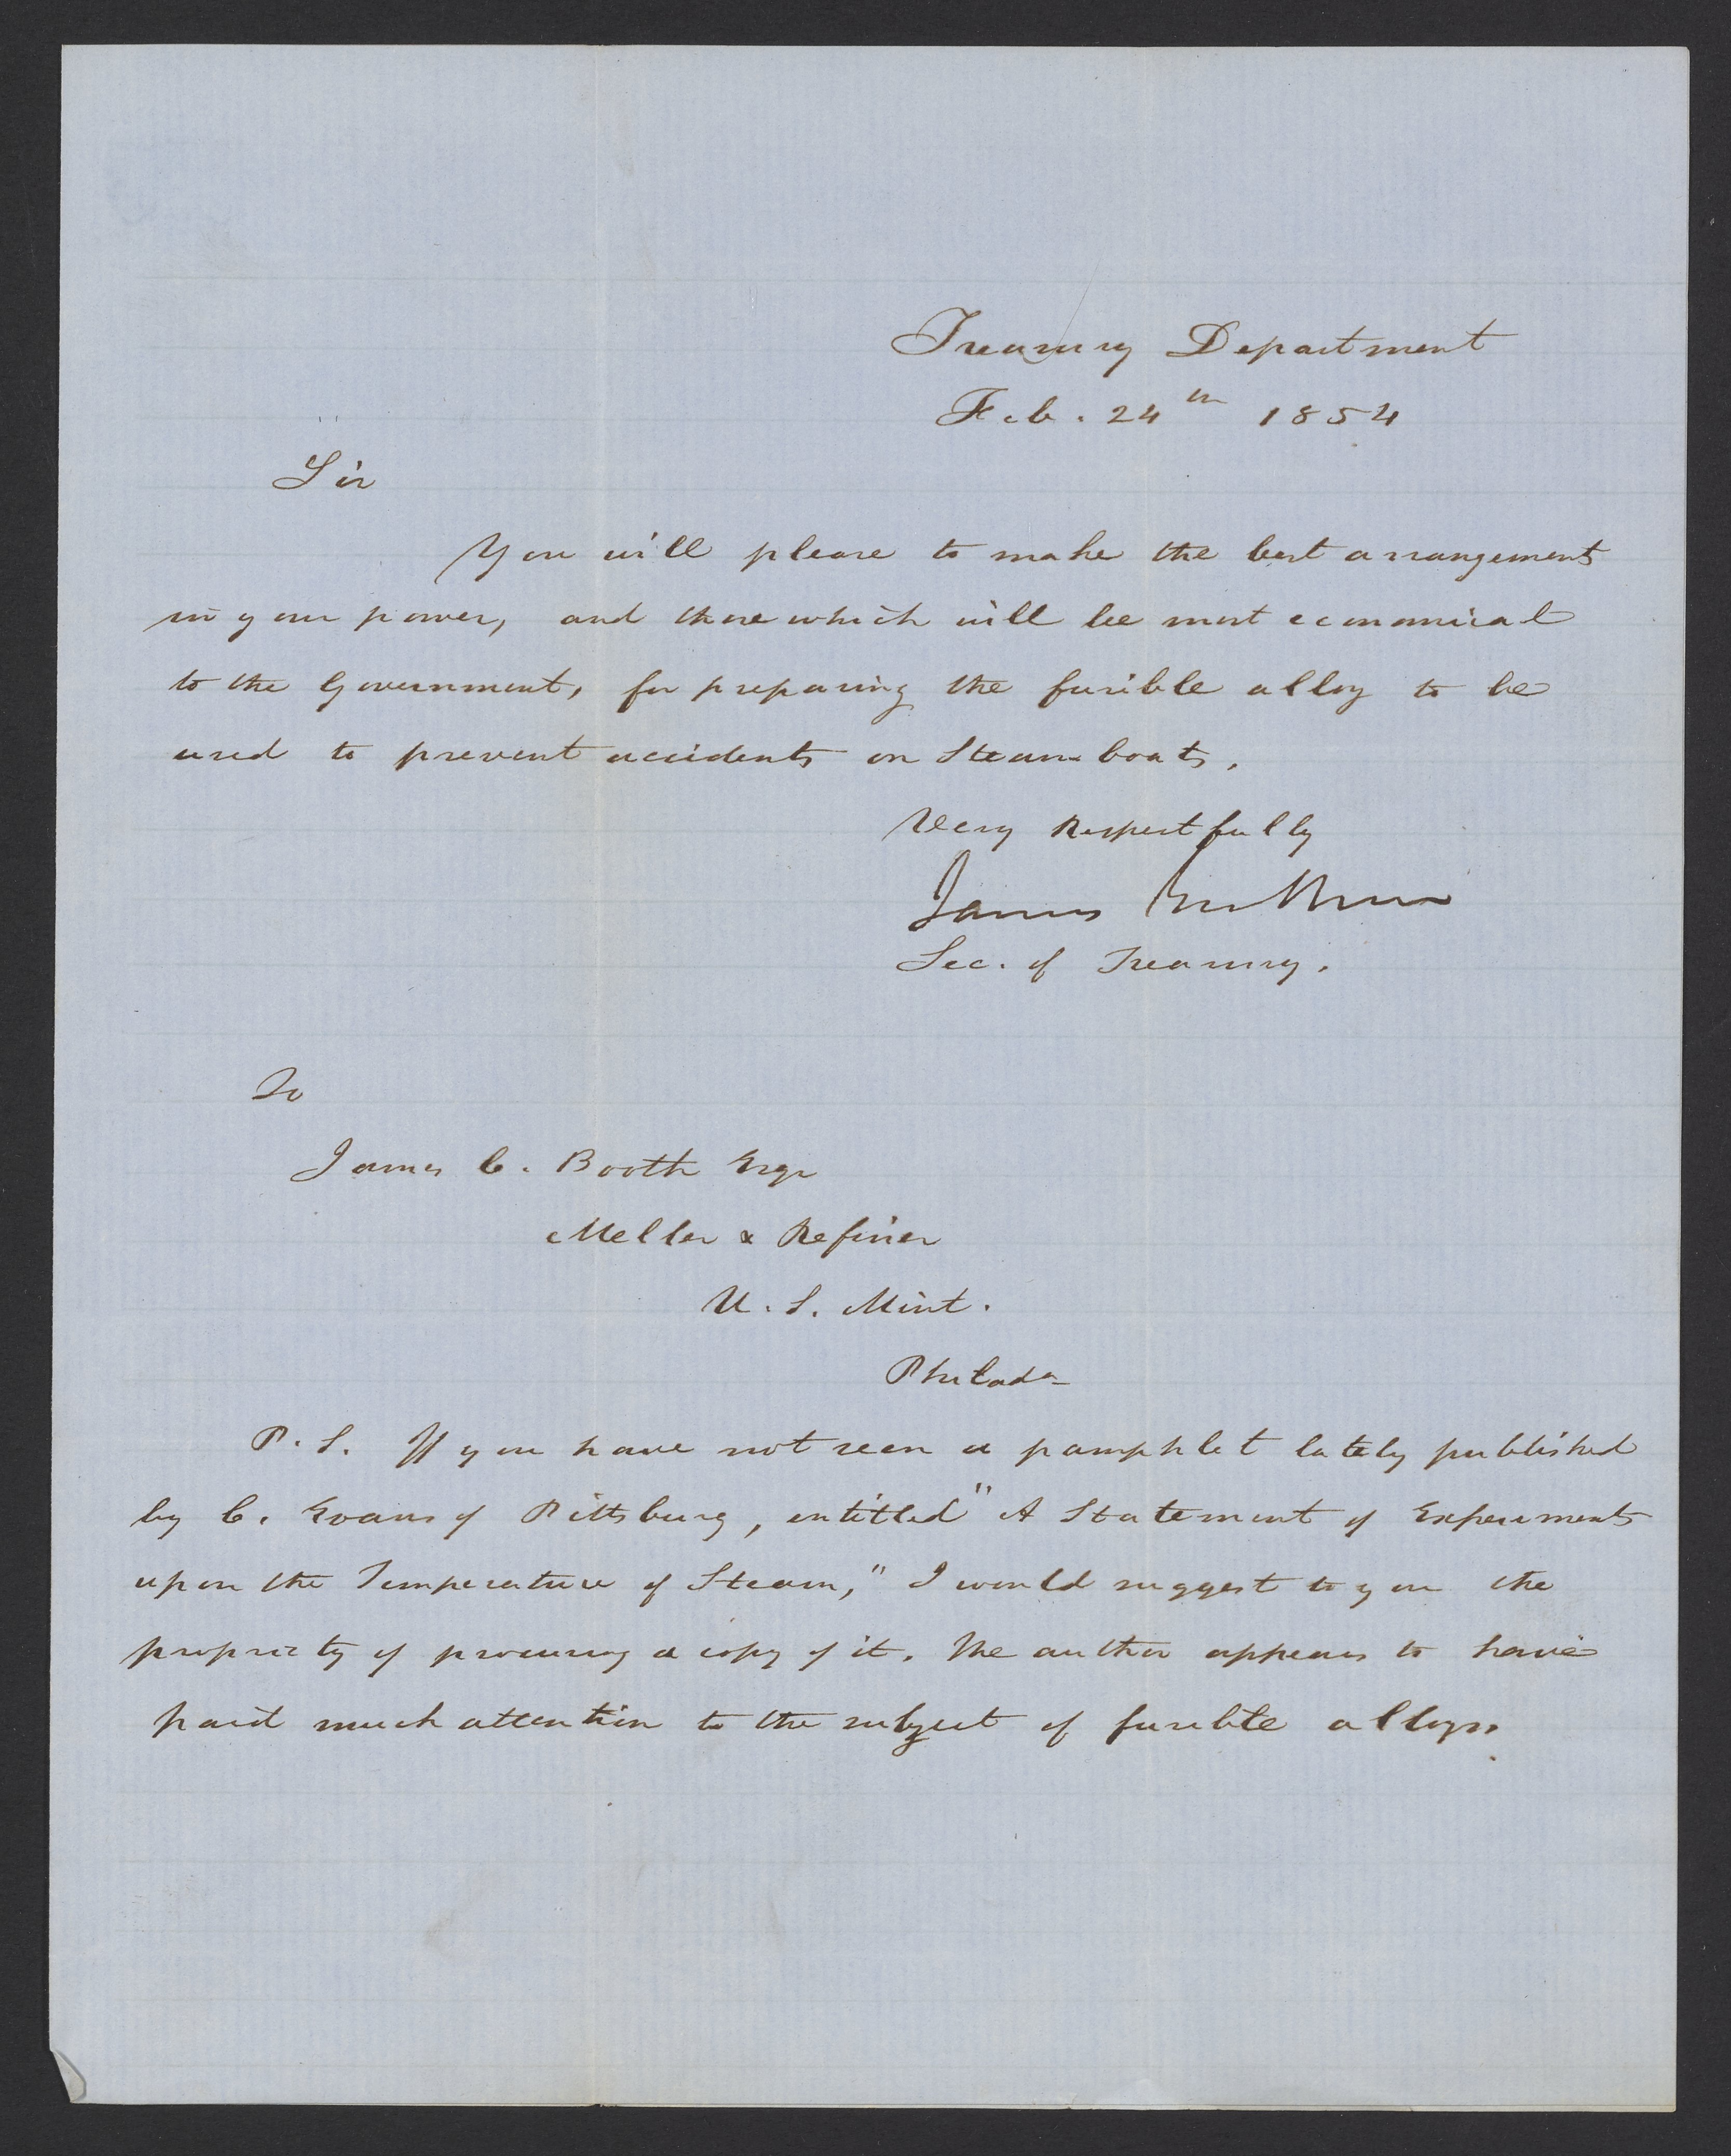 Treasury Department
Feb. 24th 1854
Sir
You will please to make the best arrangements
in your power, and those which will be most economical
to the Government, for preparing the fusible alloy to be
used to prevent accidents on Steamboats.
Very Respectfully
James Guthrie
Sec. of Treasury.
To
James C. Booth Esqr
Melter & Refiner
U. S. Mint.
Philada
P. S. If you have not seen a pamphlet lately published
by C. Evans of Pittsburg, entitled "A Statement of Experiments
upon the Temperature of Steam," I would suggest to you the
propriety of procuring a copy of it. The author appears to have
paid much attention to the subject of fusible alloys.